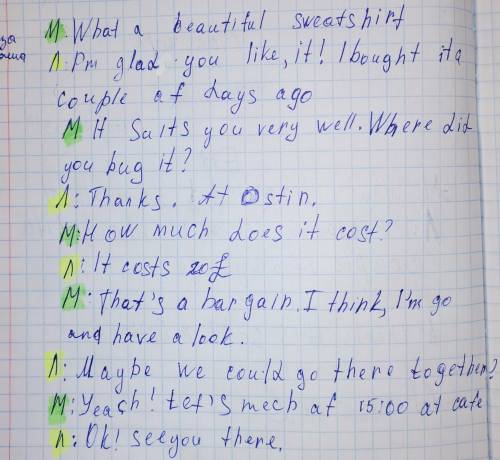 за
M: What a beautiful sweatshirt
Л: I'm glad you like, it! I bought it a
couple of days ago
M: It Suits you very well. Where did
you bug it?
Л: Thanks. At Ostin.
M: How much does it cost?
Л: It costs 20£
M: That's a bargain. I think, I'm go
and have a look.
Л: Maybe we could go there together?
M: Yeach! Let's mech at 15:00 at cafe
Л: Ok! see you there.